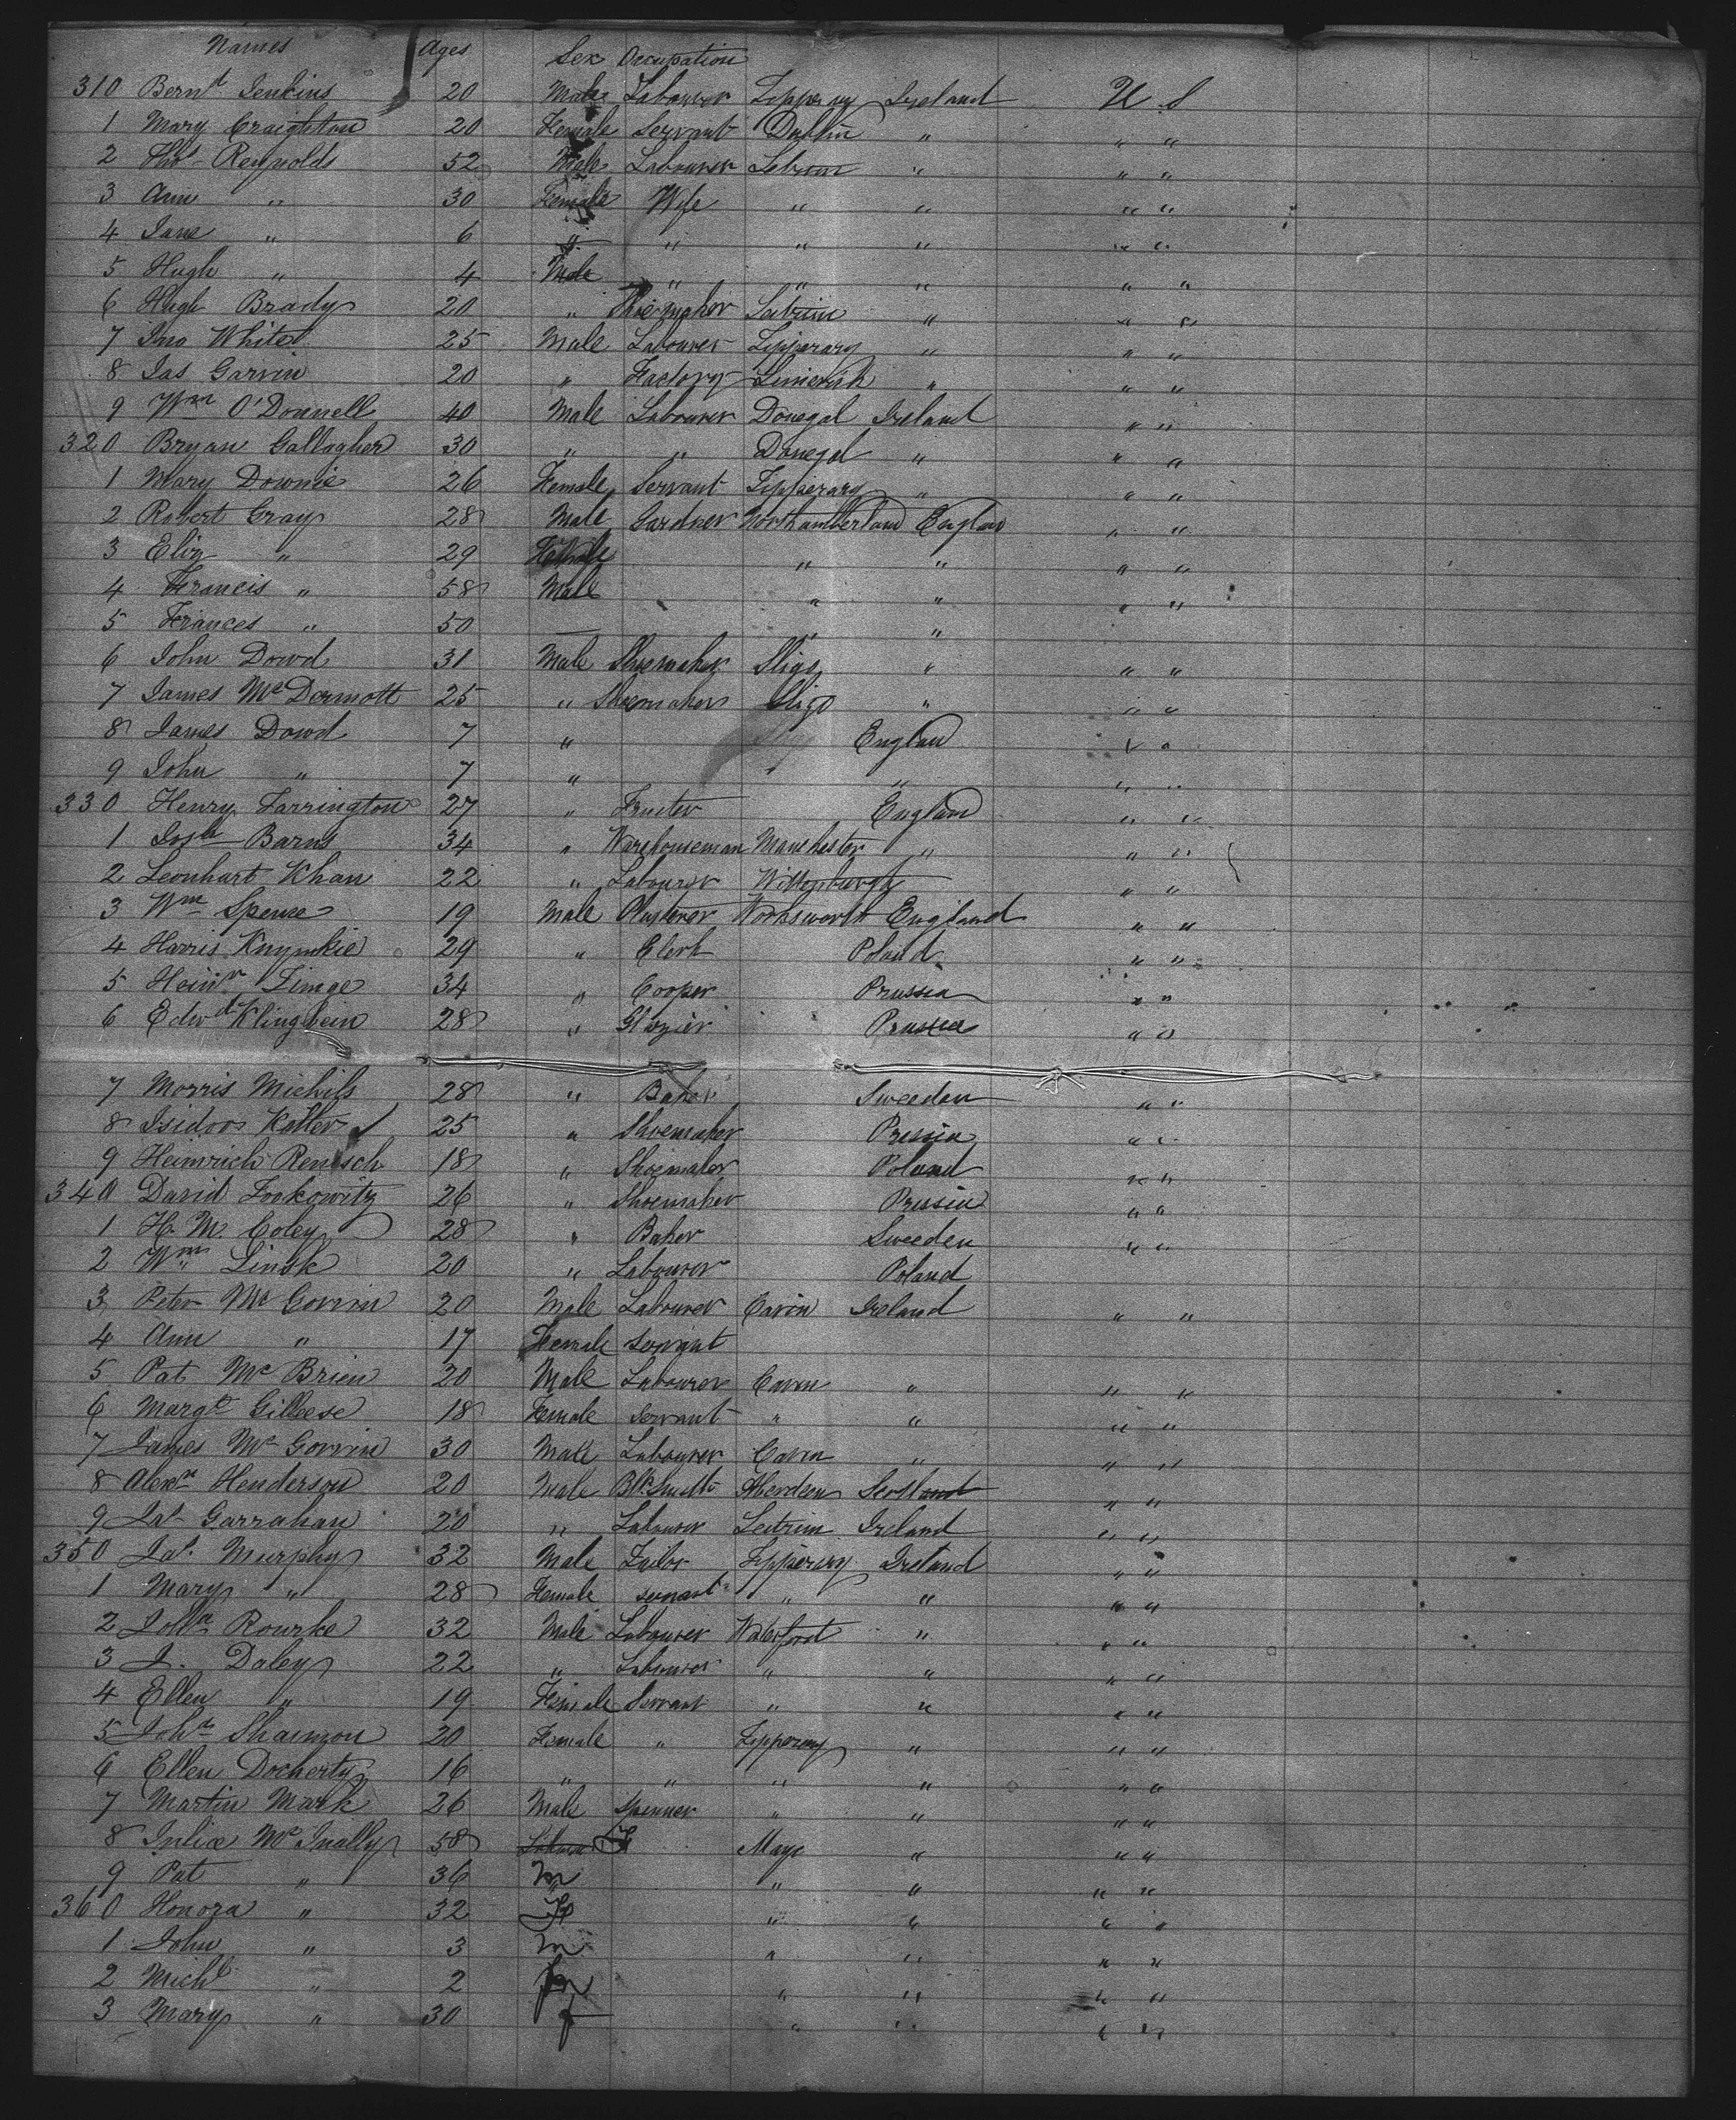 Names Ages Sex Occupation
310 Bernd Jenkins 20 Male Labourer Tipperary Ireland U S
1 Mary Creighton 20 Female Servant Dublin " " "
2 Thos Reynolds 52 Male Labourer Letrim " " "
3 Ann " 30 Female Wife " " " "
4 Jane " 6 " " " " " "
5 Hugh " 4 Male " " " " "
6 Hugh Brady 20 " Shoemaker Leitrim " " "
7 Jno White 25 Male Labourer Tipperary " " "
8 Jas Garvin 20 " Factory Limerick " " "
9 Wm O'Donnell 40 Male Labourer Donegal Ireland " "
320 Bryan Gallagher 30 " " Donegal " " "
1 Mary Downie 26 Female Servant Tipperary " " "
2 Robert Gray 28 Male Gardner Northumberland England " "
3 Eliz " 29 Female " " " "
4 Francis " 58 Male " " " "
5 Frances " 50 — " "
6 John Dowd 31 Male Shoemaker Sligo " " "
7 James McDermott 25 " Shoemaker Sligo " " "
8 James Dowd 7 " England " "
9 John " 7 " " " "
330 Henry Farrington 27 " England " "
1 Josh Barns 34 " Warehouseman Manchester " " "
2 Leonhart Khan 22 " Labourer " "
3 Wm Spense 19 Male Plusterer England " "
4 Harris 29 " Clerk Poland " "
5 Heinr Zimge 34 " Cooper Prussia " "
6 Edwd Klingbein 28 " Glazier Prussia " "
7 Morris Michils 28 " Baker Sweeden " "
8 Isidor Keller 25 " Shoemaker Prussia " "
9 Heinrich Rentsch 18 " Shoemaker Poland " "
340 David 26 " Shoemaker Prussia " "
1 H. M. Coley 28 " Baker Sweeden " "
2 Wm Linsk 20 " Labourer Poland
3 Peter McGovrin 20 Male Labourer Cavin Ireland " "
4 Ann " 17 Female Servant
5 Pat McBrien 20 Male Labourer Cavin " " "
6 Margt Gilleese 18 Female Servant " " " "
7 James McGovrin 30 Male Labourer Cavin " " "
8 Alexr Henderson 20 Male BlkSmith Aberdeen Scotland " "
9 Jas Garrahan 20 " Labourer Leitrim Ireland " "
350 Jas. Murphy 32 Male Tailor Tipperary Ireland " "
1 Mary " 28 Female servant " " " "
2 Rourke 32 Male Labourer Waterford " " "
3 J. Daley 22 " Labourer " " " "
4 Ellen " 19 Female Servant " " " "
5 Joha Shannon 20 Female " Tipperary " " "
6 Ellen Docherty 16 " " " " " "
7 Martin Mark 26 Male Spinner " " " "
8 Julia McInally 58 F Mayo " " "
9 Pat " 36 M " " " "
360 Honora " 32 F " " " "
1 John " 3 M " " " "
2 Michl " 2 M " " " "
3 Mary " 30 f " " " "